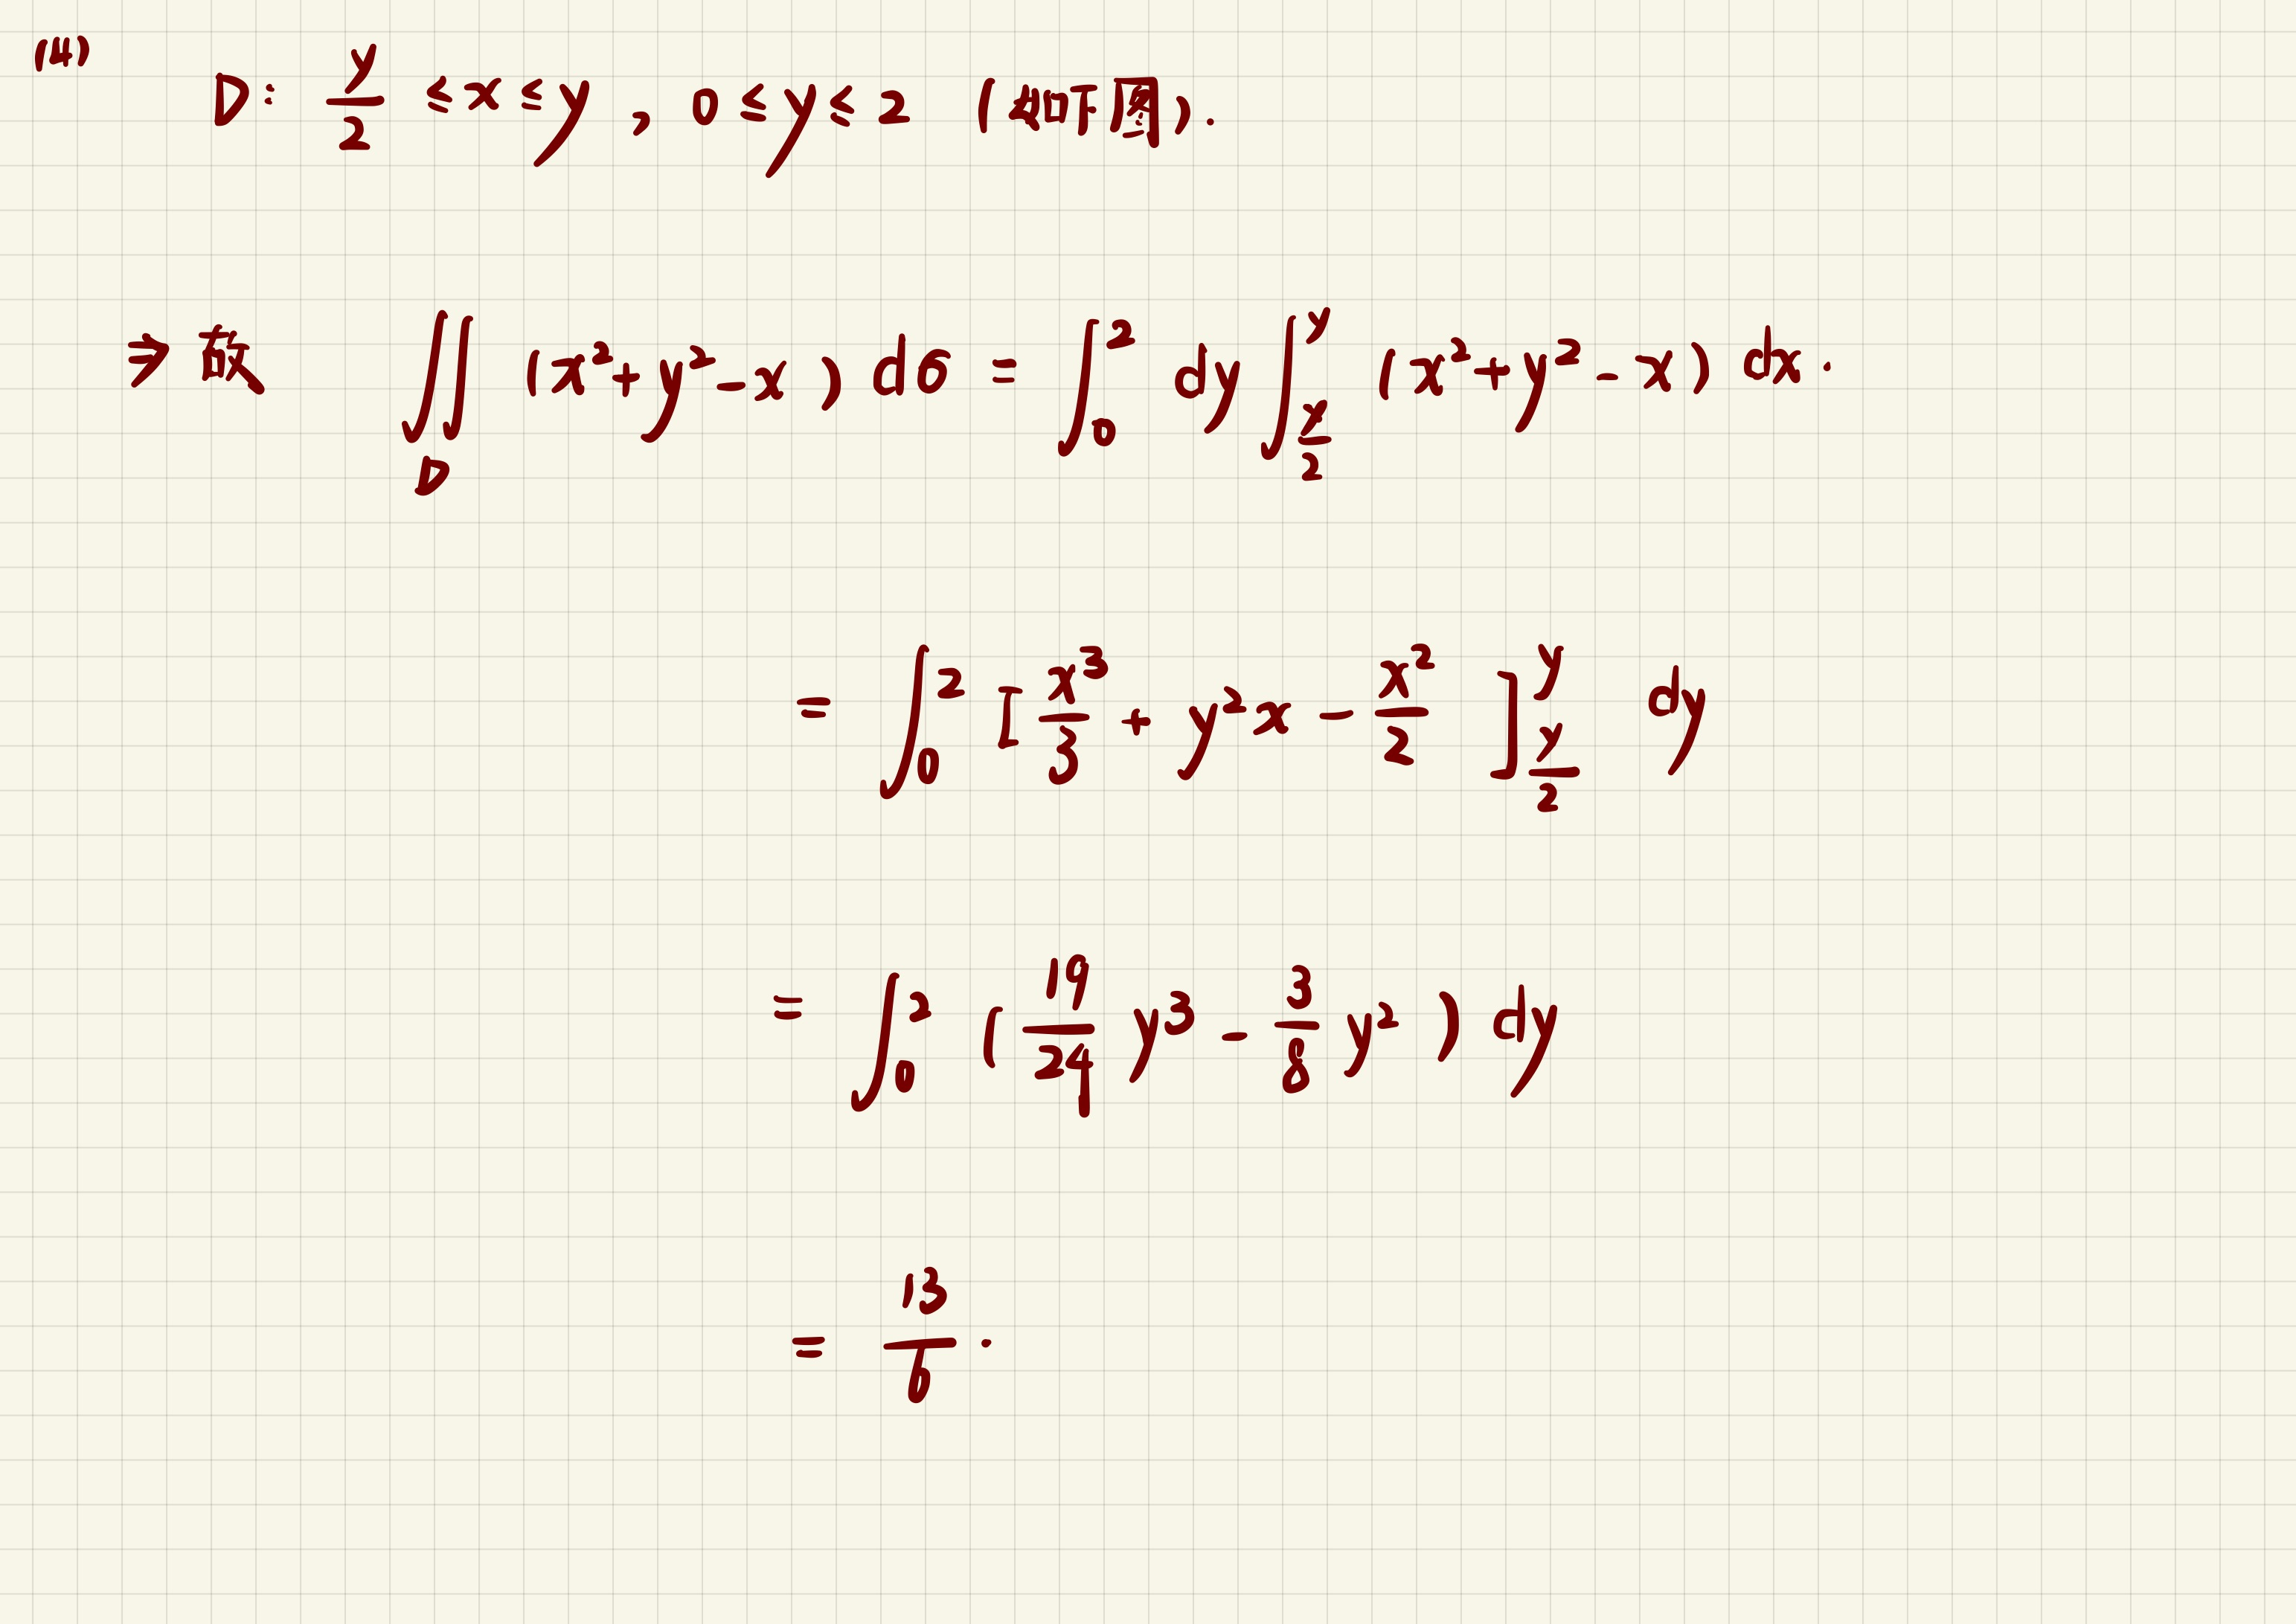 (4)
D: y/2 ≤ x ≤ y , 0 ≤ y ≤ 2 (如下圖).
⇒ 故 ∬_D (x²+y²-x) dσ = ∫_0^2 dy ∫_{y/2}^y (x²+y²-x) dx.
= ∫_0^2 [x³/3 + y²x - x²/2]_{y/2}^y dy
= ∫_0^2 (19/24 y³ - 3/8 y²) dy
= 13/6 .